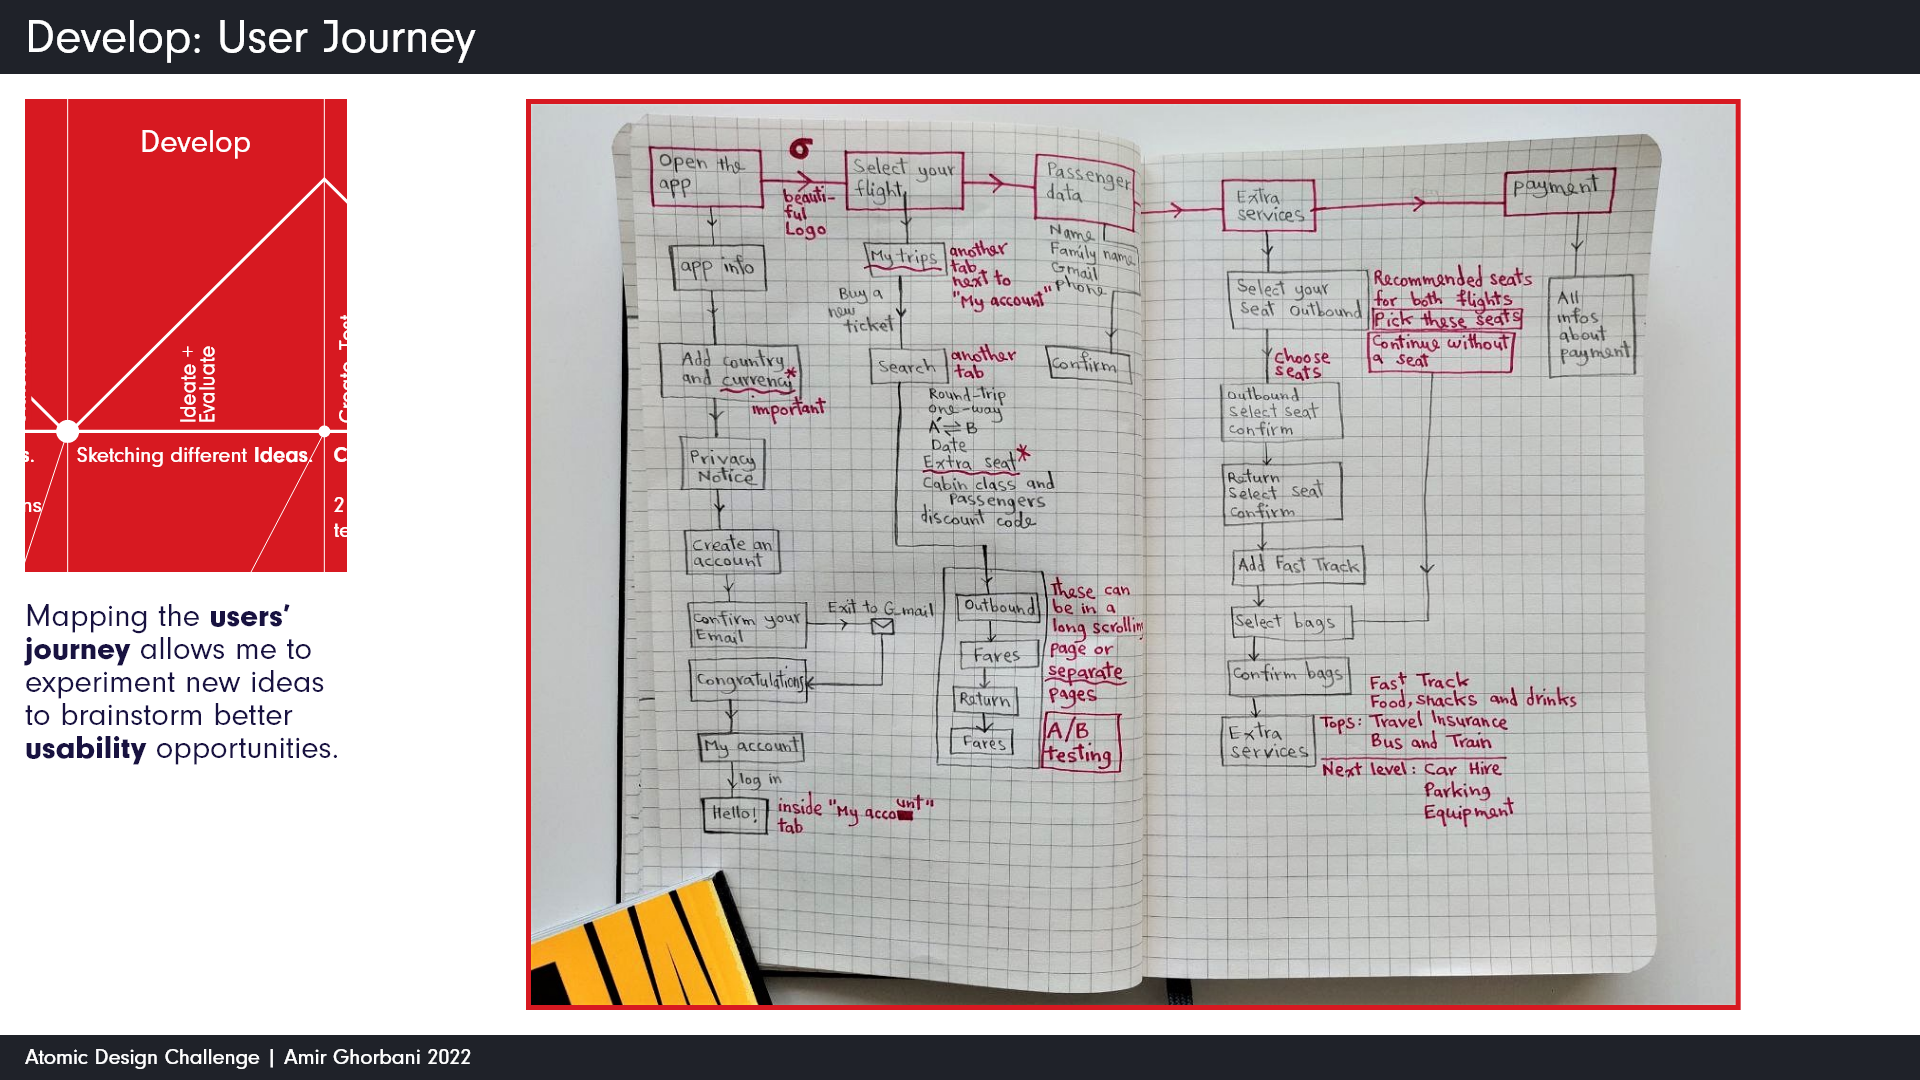 Develop: User Journey
Develop
Ideate +
Evaluate
Create Test
Sketching different Ideas.
s.
C
ns
2
te
Mapping the users’
journey allows me to
experiment new ideas
to brainstorm better
usability opportunities.
Open the
app
beauti-
ful
Logo
app info
Add country
and currency*
important
Privacy
Notice
Create an
account
Confirm your
Email
Exit to G_mail
Congratulations
My account
log in
Hello!
inside "My account"
tab
Select your
flight
My trips
another
tab
next to
"My account"
Buy a
new
ticket
Search
another
tab
Round-trip
one-way
A ⇌ B
Date
Extra seat*
Cabin class and
Passengers
discount code
Outbound
Fares
Return
Fares
these can
be in a
long scrolling
page or
separate
pages
A/B
testing
Passenger
data
Name
Family name
Gmail
phone
Confirm
Extra
services
Select your
seat outbound
Recommended seats
for both flights
Pick these seats
Continue without
a seat
choose
seats
Outbound
Select seat
confirm
Return
Select seat
Confirm
Add Fast Track
Select bags
Confirm bags
Extra
services
Fast Track
Food, snacks and drinks
Tops: Travel Insurance
Bus and Train
Next level: Car Hire
Parking
Equipment
payment
All
infos
about
payment
Atomic Design Challenge | Amir Ghorbani 2022